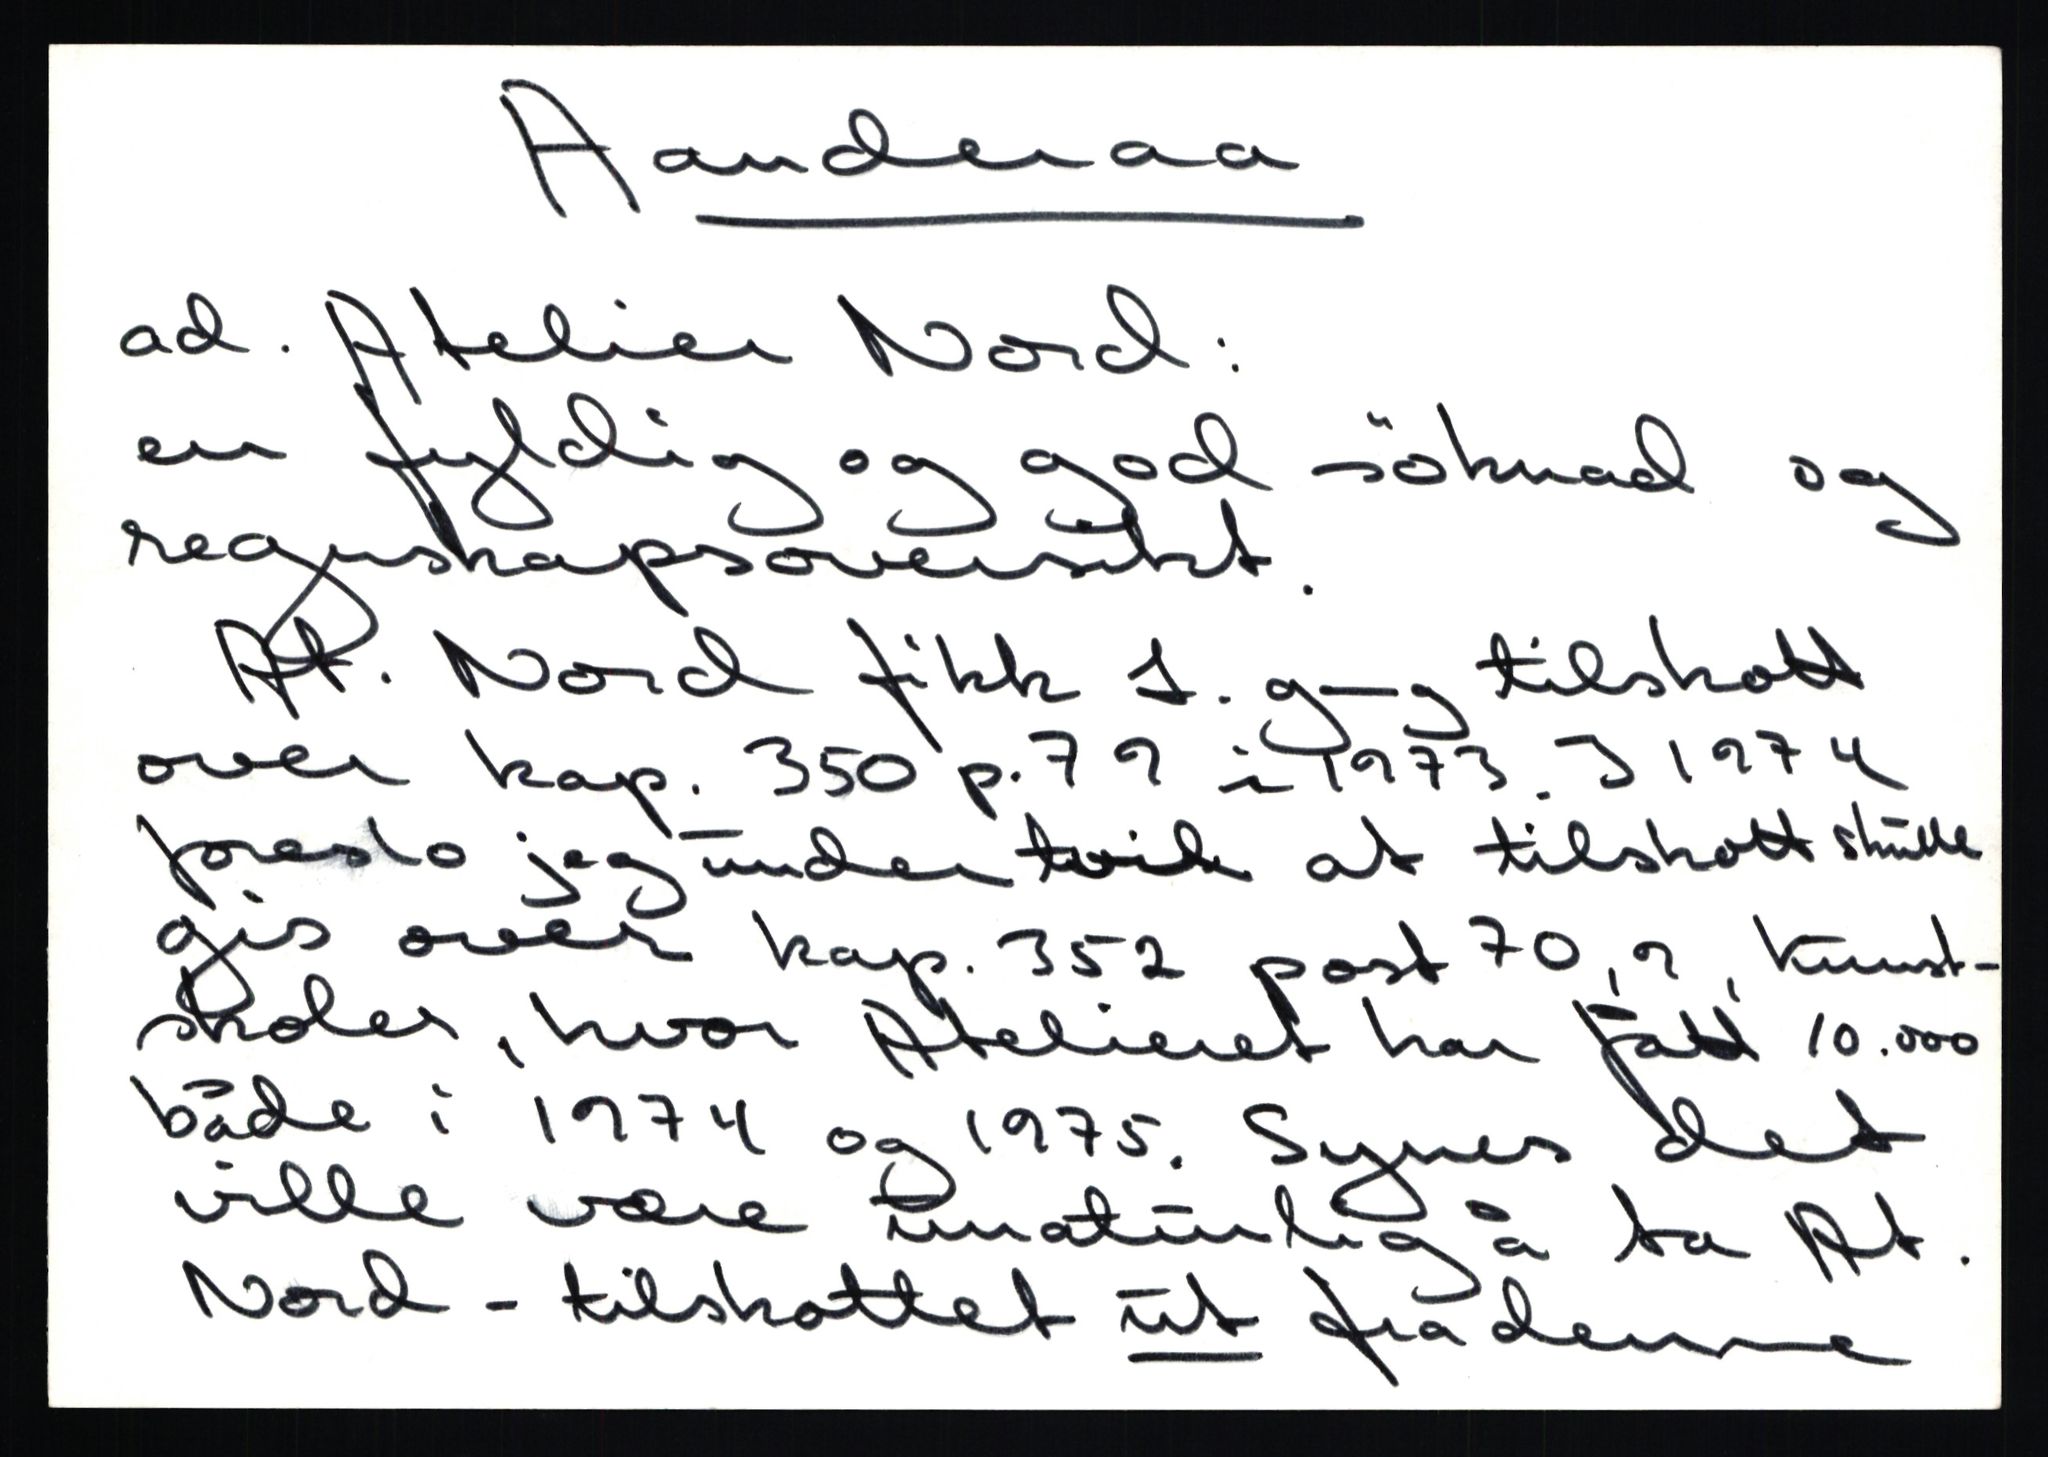 Aanderaa
ad. Atelier Nord:
en fyldig og god söknad og
regnskapsoversikt.
At. Nord fikk 1. g-g tilskott
over kap. 350 p. 79 i 1973. I 1974
foreslo jeg under tvil at tilskott skulle
gis over kap. 352 post 70,9, Kunst-
skoler, hvor Atelieret har fått 10.000
både i 1974 og 1975. Synes det
ville være unaturlig å ta At.
Nord - tilskottet ut fra denne